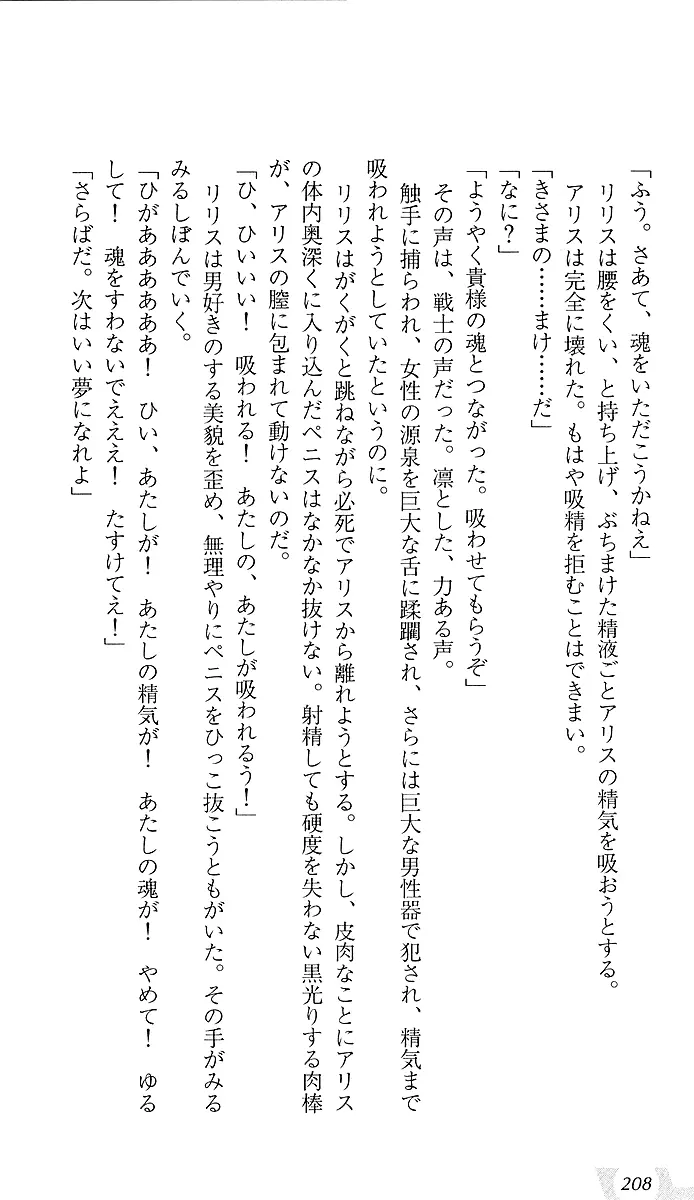 「ふう。さあて、魂をいただこうかねえ」
リリスは腰をくい、と持ち上げ、ぶちまけた精液ごとアリスの精気を吸おうとする。
アリスは完全に壊れた。もはや吸精を拒むことはできまい。
「きさまの……まけ……だ」
「なに？」
「ようやく貴様の魂とつながった。吸わせてもらうぞ」
その声は、戦士の声だった。凛とした、力ある声。
触手に捕らわれ、女性の源泉を巨大な舌に蹂躙され、さらには巨大な男性器で犯され、精気まで
吸われようとしていたというのに。
リリスはがくがくと跳ねながら必死でアリスから離れようとする。しかし、皮肉なことにアリス
の体内奥深くに入り込んだペニスはなかなか抜けない。射精しても硬度を失わない黒光りする肉棒
が、アリスの膣に包まれて動けないのだ。
「ひ、ひいいい！　吸われる！　あたしの、あたしが吸われるう！」
リリスは男好きのする美貌を歪め、無理やりにペニスをひっこ抜こうともがいた。その手がみる
みるしぼんでいく。
「ひがああああああ！　ひい、あたしが！　あたしの精気が！　あたしの魂が！　やめて！　ゆる
して！　魂をすわないでえええ！　たすけてえ！」
「さらばだ。次はいい夢になれよ」
208